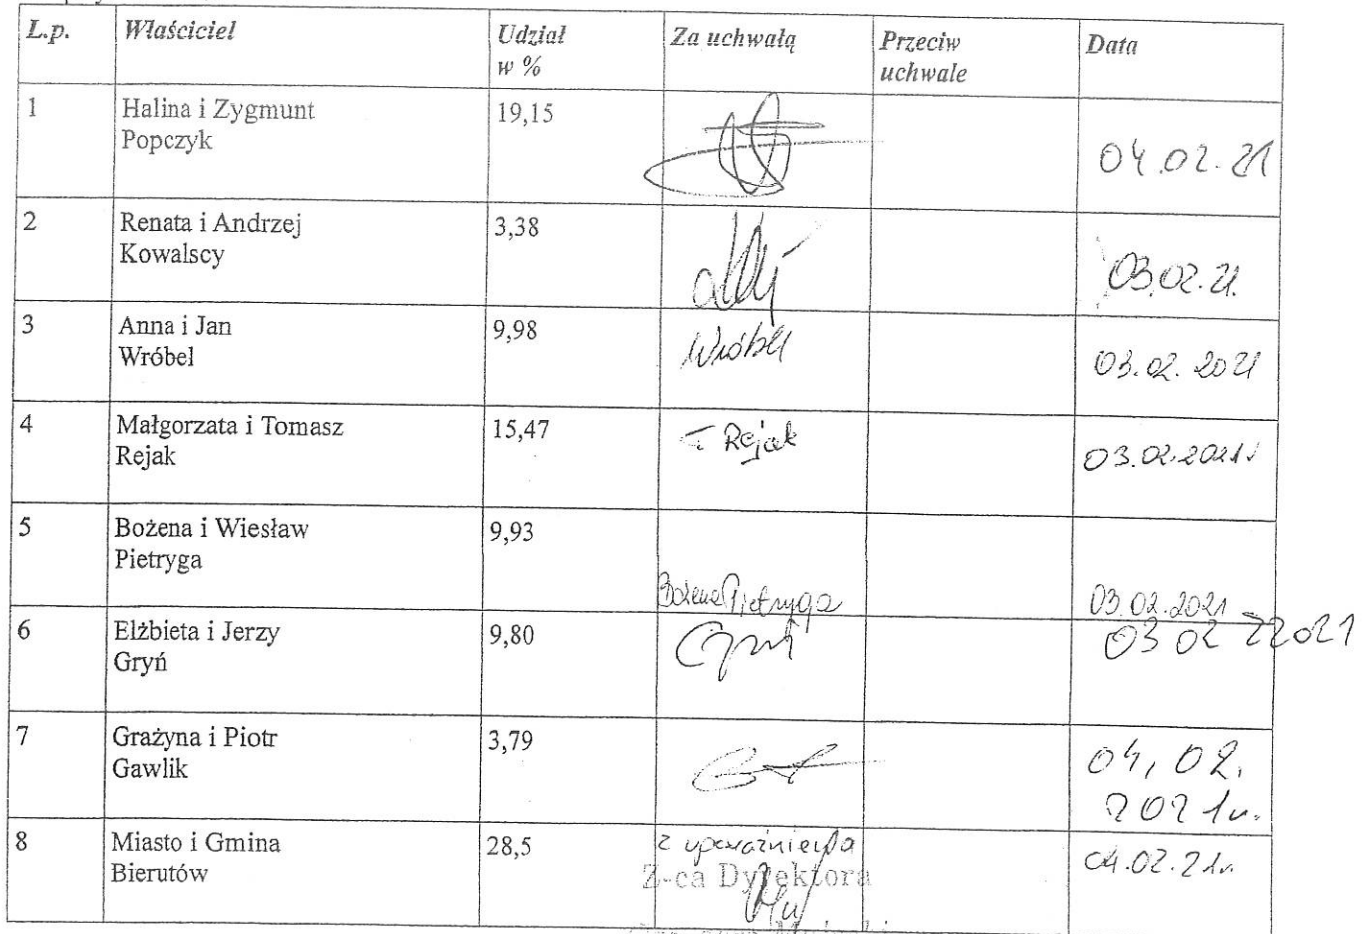 L.p. Właściciel Udział w % Za uchwałą Przeciw uchwale Data
1 Halina i Zygmunt Popczyk 19,15 04.02.21
2 Renata i Andrzej Kowalscy 3,38 03.02.21.
3 Anna i Jan Wróbel 9,98 Wróbel 03.02.2021
4 Małgorzata i Tomasz Rejak 15,47 T Rejak 03.02.2021r
5 Bożena i Wiesław Pietryga 9,93 Bożena Pietryga 03.02.2021
6 Elżbieta i Jerzy Gryń 9,80 03 02 2021
7 Grażyna i Piotr Gawlik 3,79 04,02. 2021r.
8 Miasto i Gmina Bierutów 28,5 z upoważnienia Z-ca Dyrektora 04.02.21r.